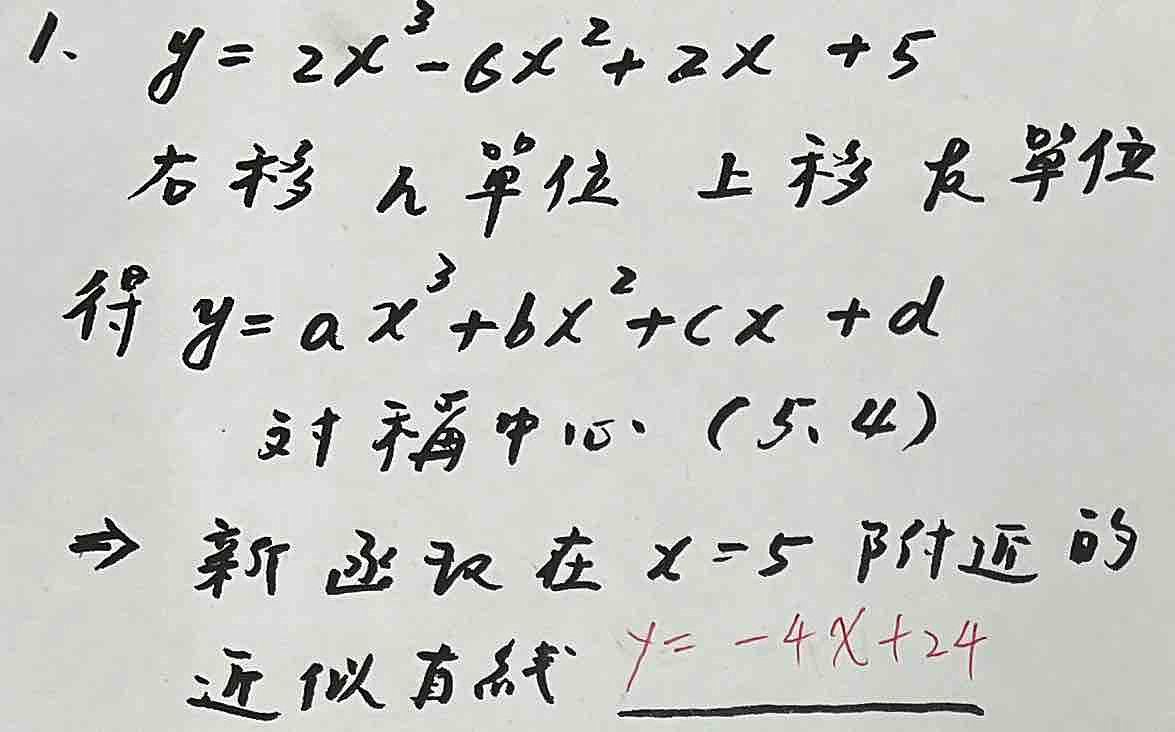 1、 y = 2x³ - 6x² + 2x + 5
右移 h 單位 上移 k 單位
得 y = ax³ + bx² + cx + d
対稱中心 (5、4)
⇒ 新函数在 x = 5 附近的
近似直線 y = -4x + 24